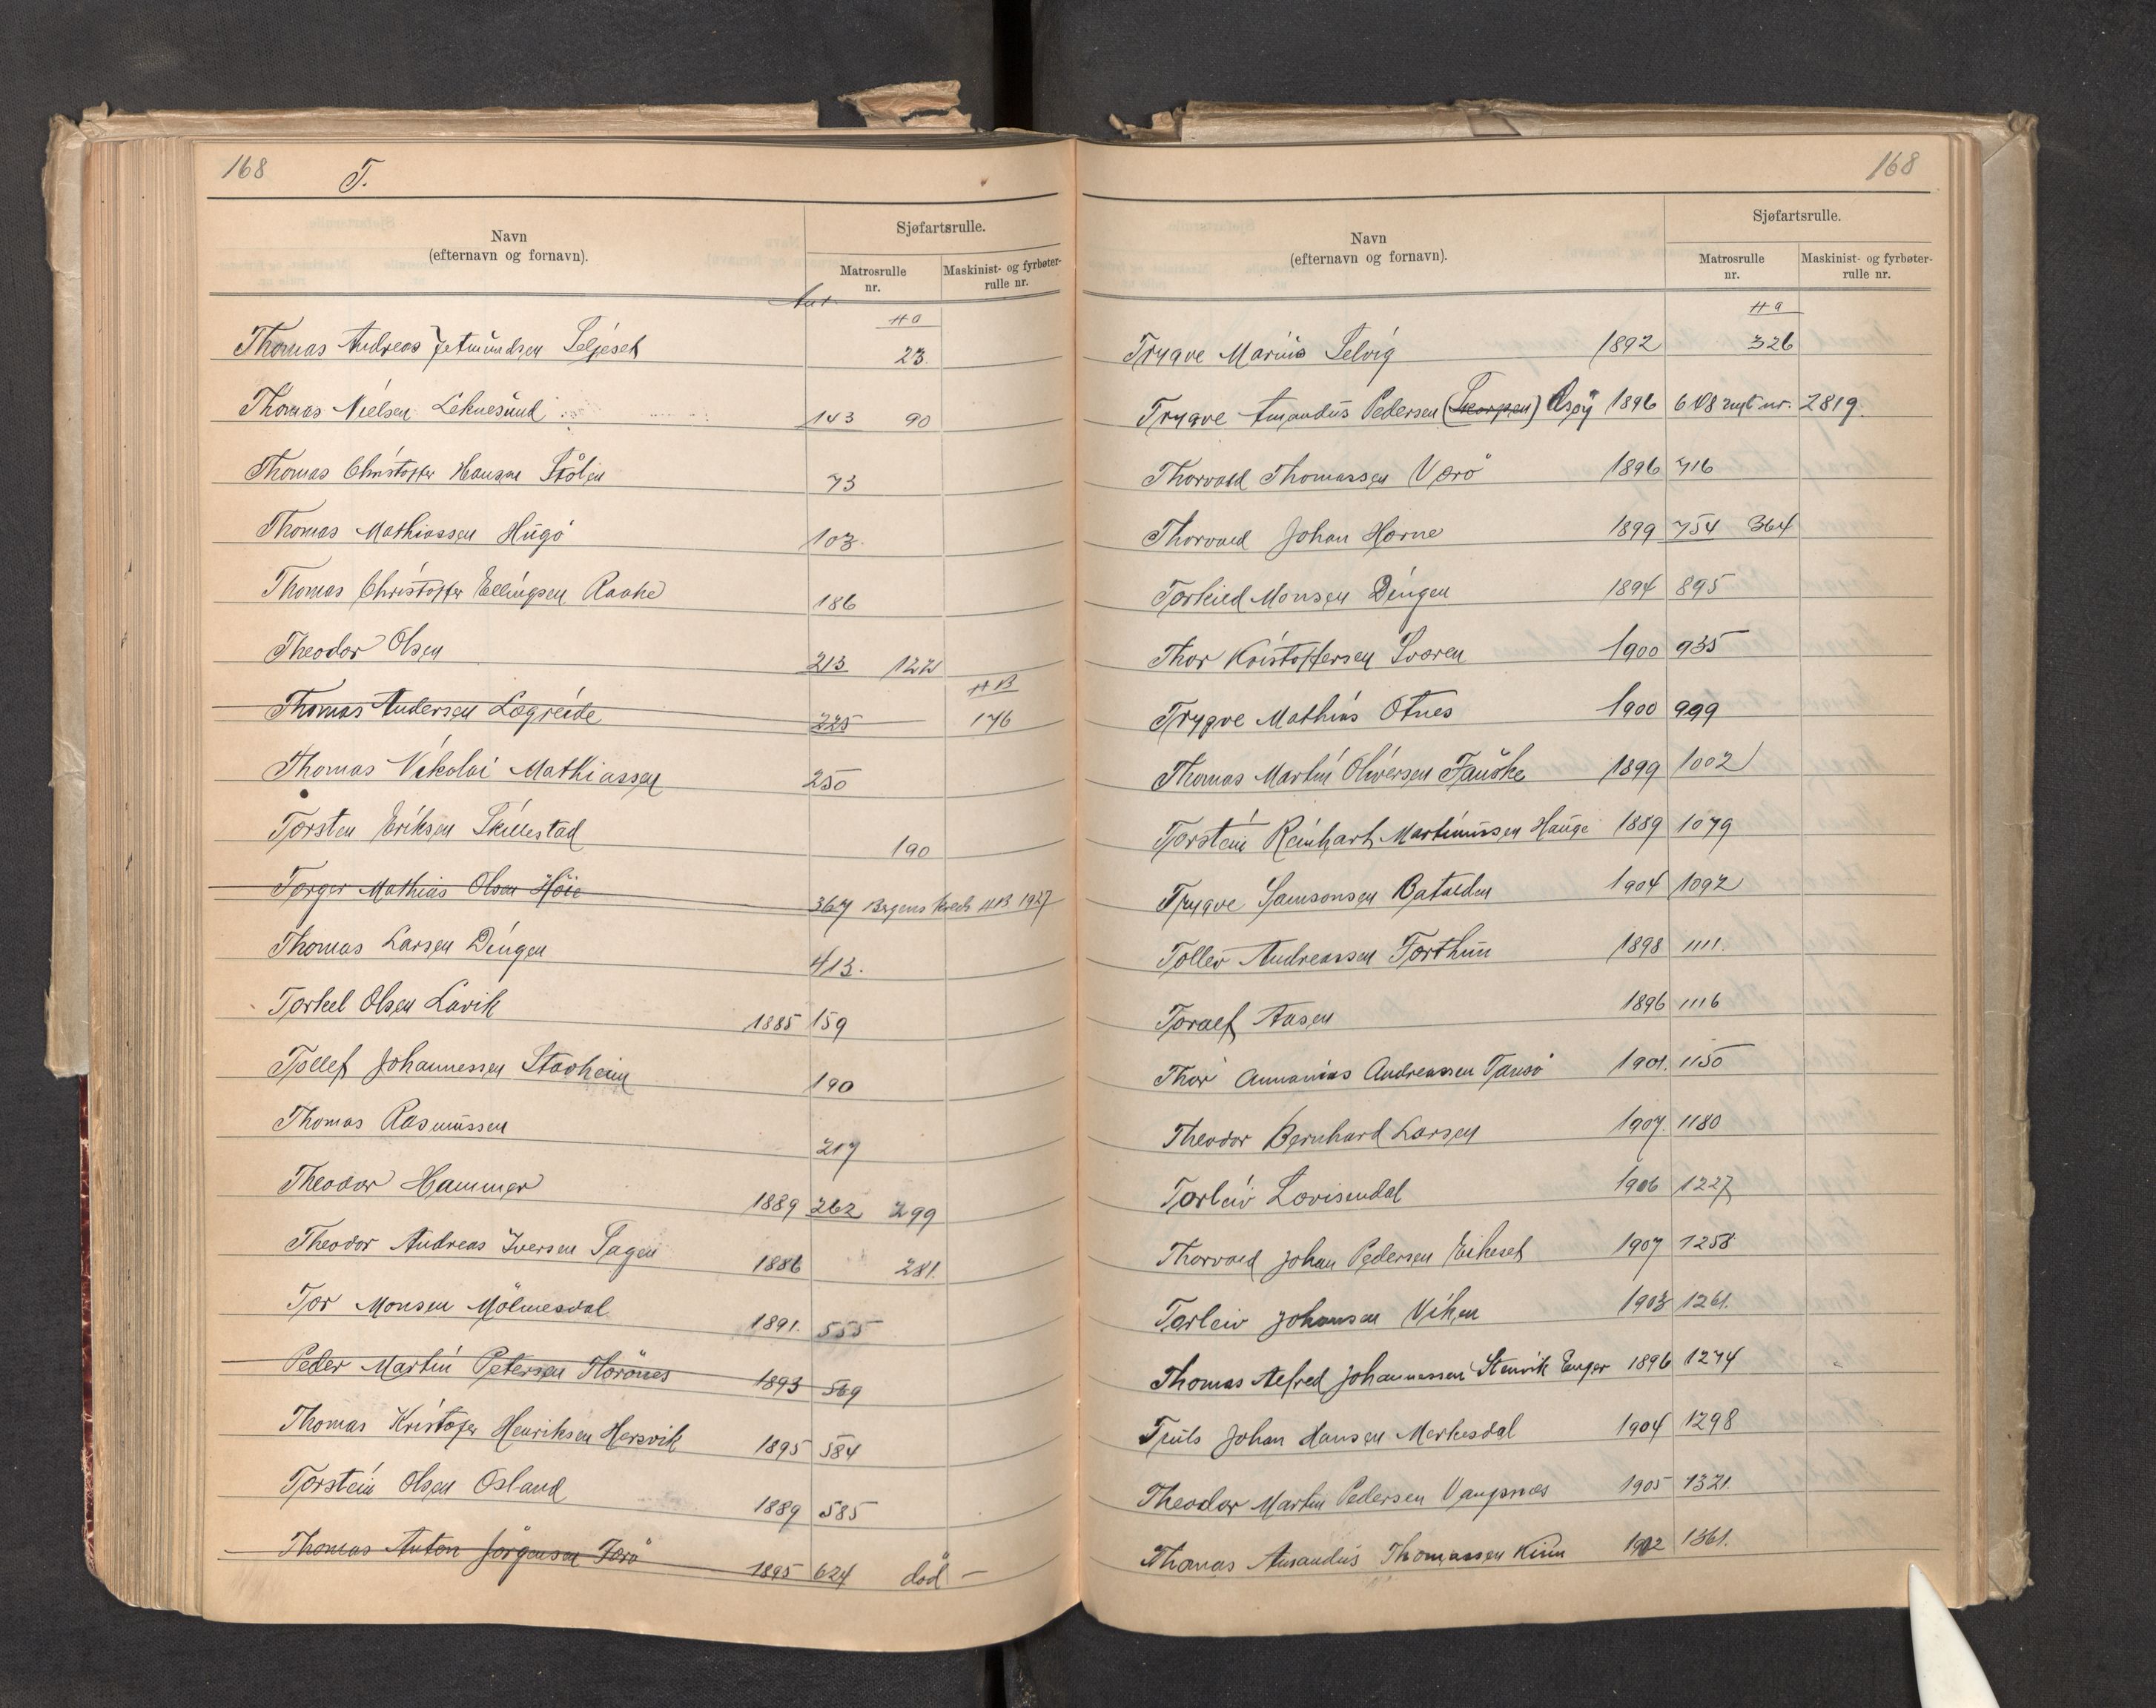 168 T.
Navn
(efternavn og fornavn).
Sjøfartsrulle.
Matrosrulle
nr.
Maskinist- og fyrbøter-
rulle nr.
HA
Thomas Andreas Jetmundsen Seljeset 23.
Thomas Nielsen Leknesund 143 90
Thomas Christoffer Hansen Stölen 73
Thomas Mathiassen Hugö 103.
Thomas Christoffer Ellingsen Raake 186
Theodor Olsen 213 122
HB
Thomas Andersen Lægreide 225 176
Thomas Nikolai Mathiassen 250
Torsten Eriksen Skillestad 190
Torger Mathias Olsen Höie 367 Bergens Kreds HB 1927
Thomas Larsen Dingen 413.
Torkel Olsen Lavik 1885 159
Tollef Johannessen Stavheim 190
Thomas Rasmussen 217
Theodor Hammer 1889 262 299
Theodor Andreas Iversen Sagen 1886 281.
Tor Monsen Mölmesdal 1891. 555
Peder Martin Petersen Florönes 1893 569
Thomas Kristofer Henriksen Hersvik 1895 584
Torstein Olsen Osland 1889 585
Thomas Anton Jörgensen Færö 1895 624 död —
168
Navn
(efternavn og fornavn).
Sjøfartsrulle.
Matrosrulle
nr.
Maskinist- og fyrbøter-
rulle nr.
HA
Trygve Marius Selvig 1892 326
Trygve Amandus Pedersen Aspöy 1896 648 nyt nr. 2819.
Thorvald Thomassen Værö 1896 716
Thorvald Johan Horne 1899 754 364
Torkild Monsen Dingen 1894 895
Thor Kristoffersen Svoren 1900 935
Trygve Mathias Otnes 1900 999
Thomas Martin Oliversen Fauske 1899 1002
Torstein Reinhart Martinussen Hauge 1889 1079
Trygve Samsonsen Batalden 1904 1092
Tollev Andreassen Forthun 1898 1111.
Toralf Aasen 1896 1116
Thor Annanias Andreassen Tansö 1901. 1150
Theodor Bernhard Larsen 1907. 1180
Torleiv Lovisendal 1906 1227
Thorvald Johan Pedersen Eikeset 1907 1258
Torleiv Johansen Viken 1903 1261.
Thomas Alfred Johannessen Stenvik Enger 1896 1274
Truls Johan Hansen Merkesdal 1904 1298
Theodor Martin Pedersen Vangsnes 1905 1321.
Thomas Amandus Thomassen Kinn 1902 1361.